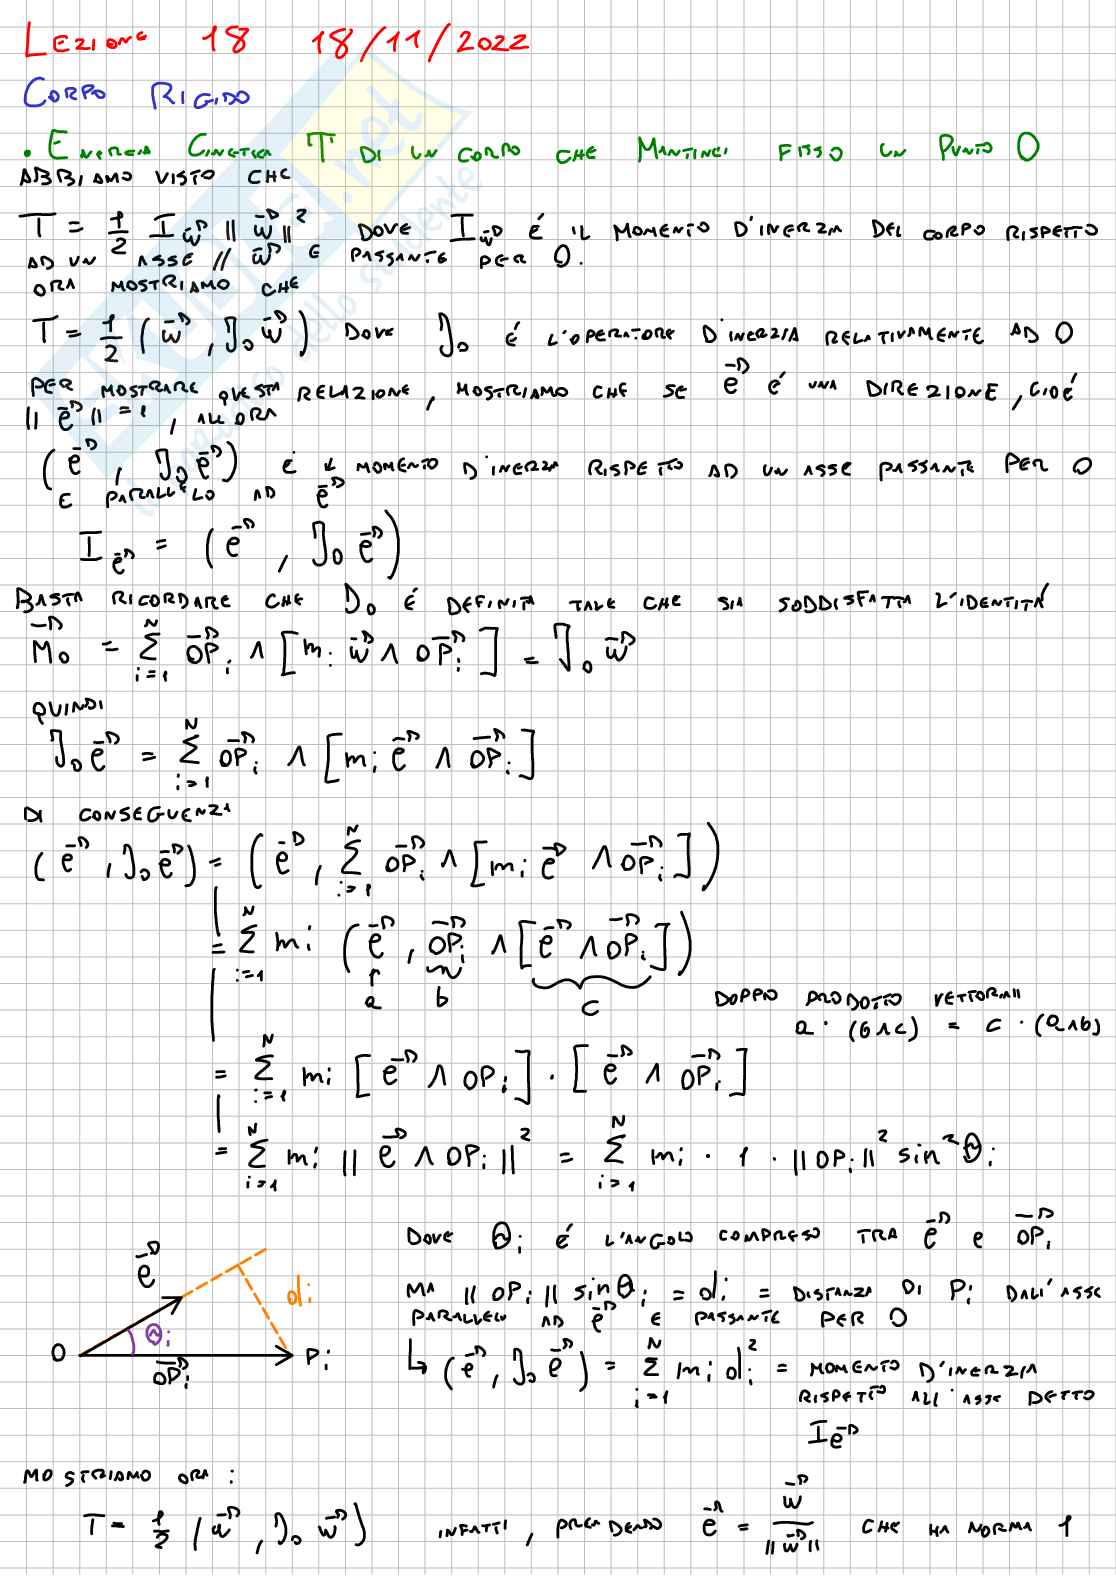 LEZIONE 18 18/11/2022
CORPO RIGIDO
. ENERGIA CINETICA T DI UN CORPO CHE MANTINEI FISSO UN PUNTO O
ABBIAMO VISTO CHE
T = 1/2 I_w⃗ ||w⃗||² DOVE I_w⃗ É IL MOMENTO D'INERZIA DEL CORPO RISPETTO
AD UN ASSE // w⃗ E PASSANTE PER O.
ORA MOSTRIAMO CHE
T = 1/2 (w⃗, J₀ w⃗) DOVE J₀ É L'OPERATORE D'INERZIA RELATIVAMENTE AD O
PER MOSTRARE QUESTA RELAZIONE, MOSTRIAMO CHE SE e⃗ É UNA DIREZIONE, CIOÉ
||e⃗|| = 1, ALLORA
(e⃗, J₀ e⃗) É IL MOMENTO D'INERZIA RISPETTO AD UN ASSE PASSANTE PER O
E PARALLELO AD e⃗
I_e⃗ = (e⃗, J₀ e⃗)
BASTA RICORDARE CHE J₀ É DEFINITA TALE CHE SIA SODDISFATTA L'IDENTITÁ
M⃗₀ = Σ_{i=1}^{N} OP⃗ᵢ ∧ [mᵢ w⃗ ∧ OP⃗ᵢ] = J₀ w⃗
QUINDI
J₀ e⃗ = Σ_{i=1}^{N} OP⃗ᵢ ∧ [mᵢ e⃗ ∧ OP⃗ᵢ]
DI CONSEGUENZA
(e⃗, J₀ e⃗) = (e⃗, Σ_{i=1}^{N} OP⃗ᵢ ∧ [mᵢ e⃗ ∧ OP⃗ᵢ])
= Σ_{i=1}^{N} mᵢ (e⃗, OP⃗ᵢ ∧ [e⃗ ∧ OP⃗ᵢ])
a b c
DOPPIO PRODOTTO VETTORIALE
a · (b∧c) = c · (a∧b)
= Σ_{i=1}^{N} mᵢ [e⃗ ∧ OPᵢ] · [e⃗ ∧ OP⃗ᵢ]
= Σ_{i=1}^{N} mᵢ ||e⃗ ∧ OPᵢ||² = Σ_{i=1}^{N} mᵢ · 1 · ||OPᵢ||² sin²θᵢ
DOVE θᵢ É L'ANGOLO COMPRESO TRA e⃗ e OP⃗ᵢ
e⃗ dᵢ
θᵢ
O OP⃗ᵢ Pᵢ
MA ||OPᵢ|| sinθᵢ = dᵢ = DISTANZA DI Pᵢ DALL'ASSE
PARALLELO AD e⃗ E PASSANTE PER O
↳ (e⃗, J₀ e⃗) = Σ_{i=1}^{N} mᵢ dᵢ² = MOMENTO D'INERZIA
RISPETTO ALL'ASSE DETTO
I_e⃗
MOSTRIAMO ORA:
T = 1/2 (w⃗, J₀ w⃗) INFATTI, PRENDENDO e⃗ = w⃗/||w⃗|| CHE HA NORMA 1